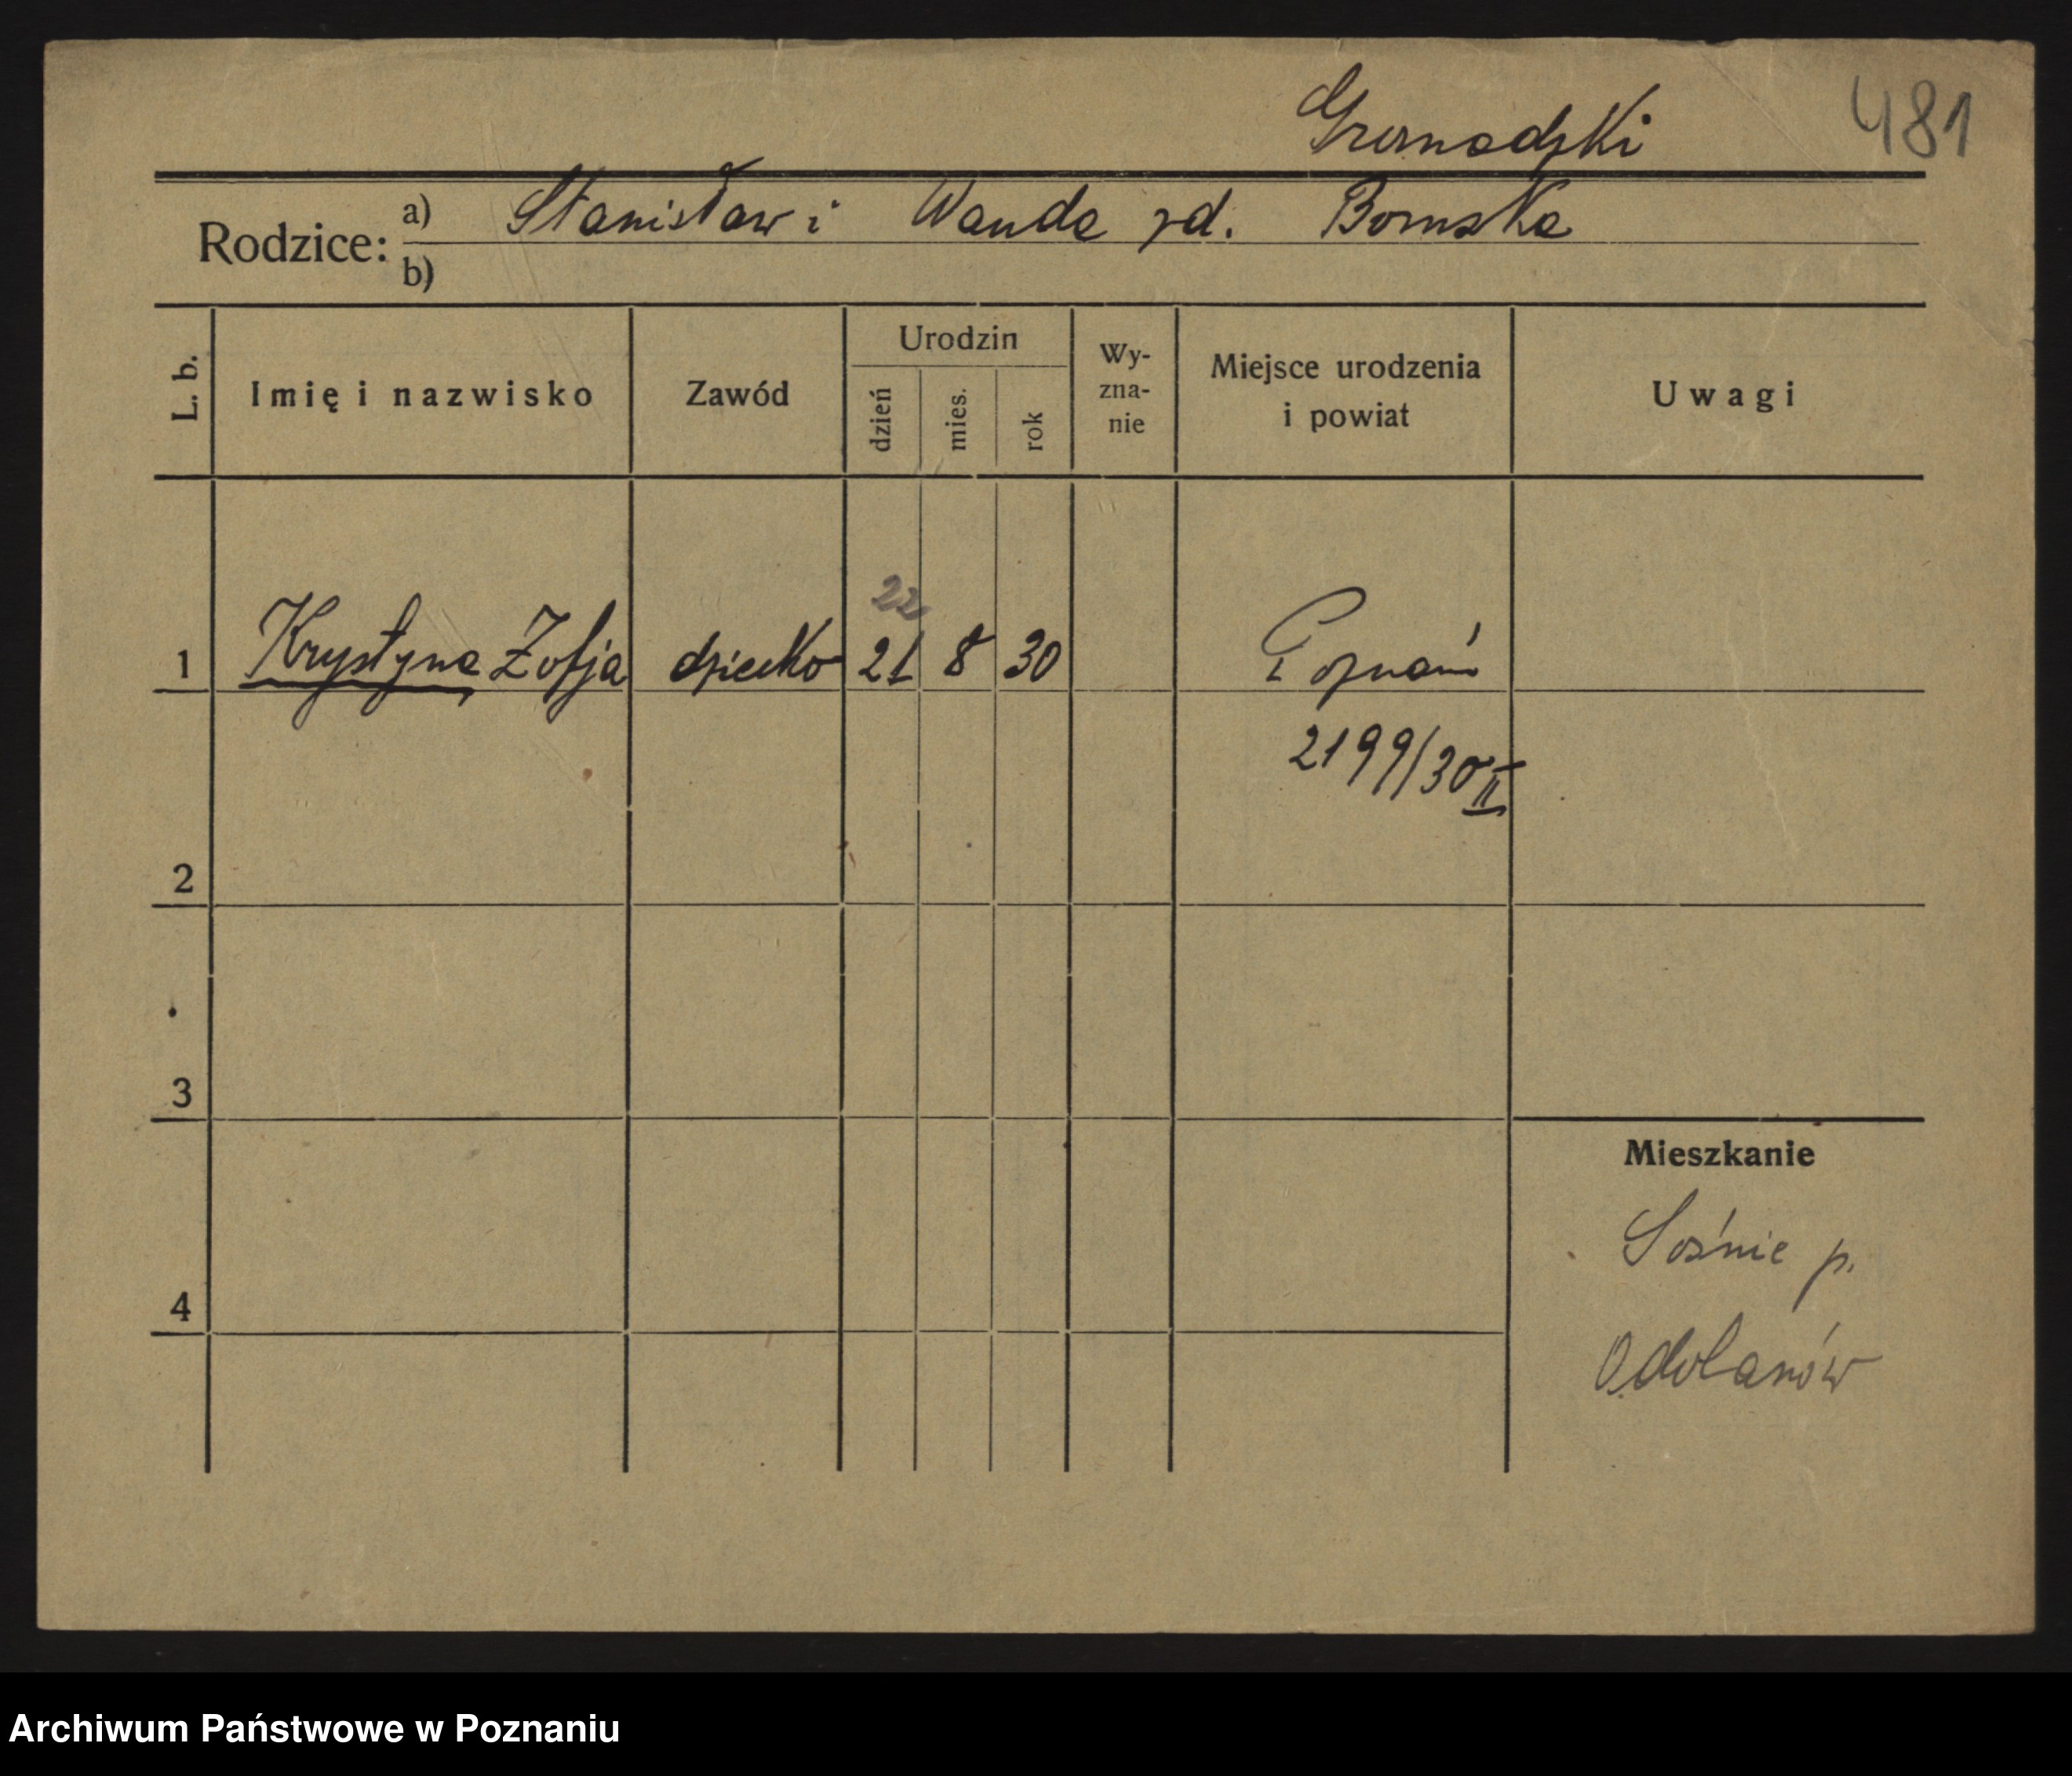 Gromadzki 481
Rodzice: a) Stanisław i Wanda zd. Bomska
b)
L. b. Imię i nazwisko Zawód Urodzin dzień mies. rok Wy-zna-nie Miejsce urodzenia i powiat Uwagi
22
1 Krystyna Zofja dziecko 21 8 30 Poznań
2199/30 II
2
3
Mieszkanie
Sośnie p.
4
Odolanów
Archiwum Państwowe w Poznaniu